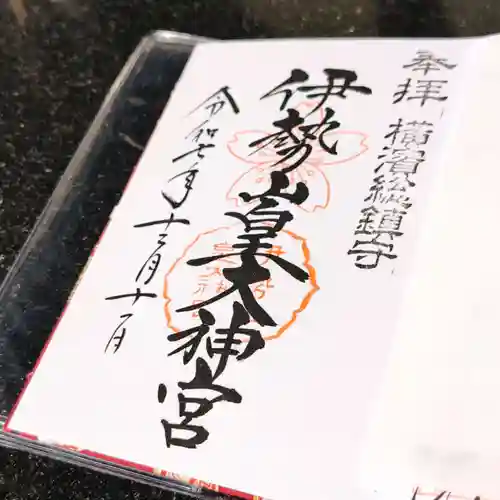 奉拝
横濱総鎮守
伊勢山皇大神宮
令和七年十二月十一日